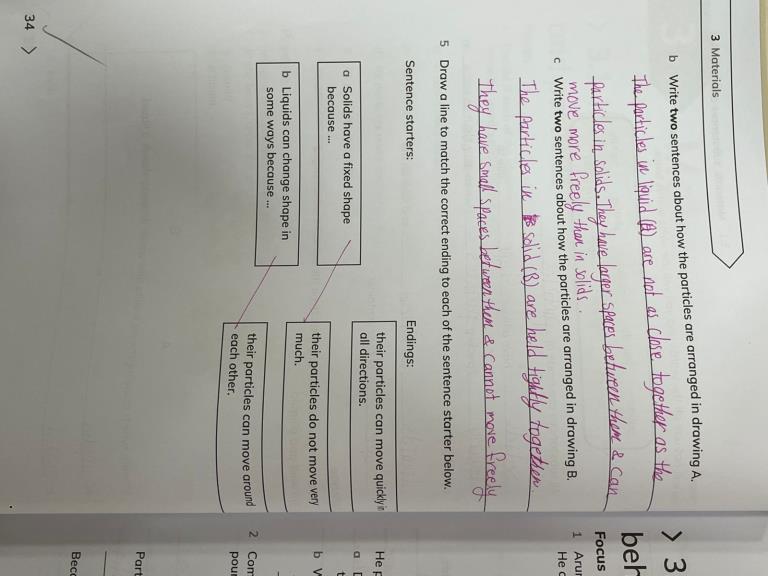 3 Materials
b Write two sentences about how the particles are arranged in drawing A.
The particles in liquid (A) are not as close together as the
particles in solids. They have larger spaces between them & can
move more freely than in solids.
c Write two sentences about how the particles are arranged in drawing B.
The particles in solid (B) are held tightly together.
They have small spaces between them & cannot move freely
5 Draw a line to match the correct ending to each of the sentence starter below.
Sentence starters:
Endings:
a Solids have a fixed shape
because ...
b Liquids can change shape in
some ways because ...
their particles can move quickly in
all directions.
their particles do not move very
much.
their particles can move around
each other.
34 >
> 3
beh
Focus
1 Arun
He
He p
a
b
2 Com
pour
Part
Beca